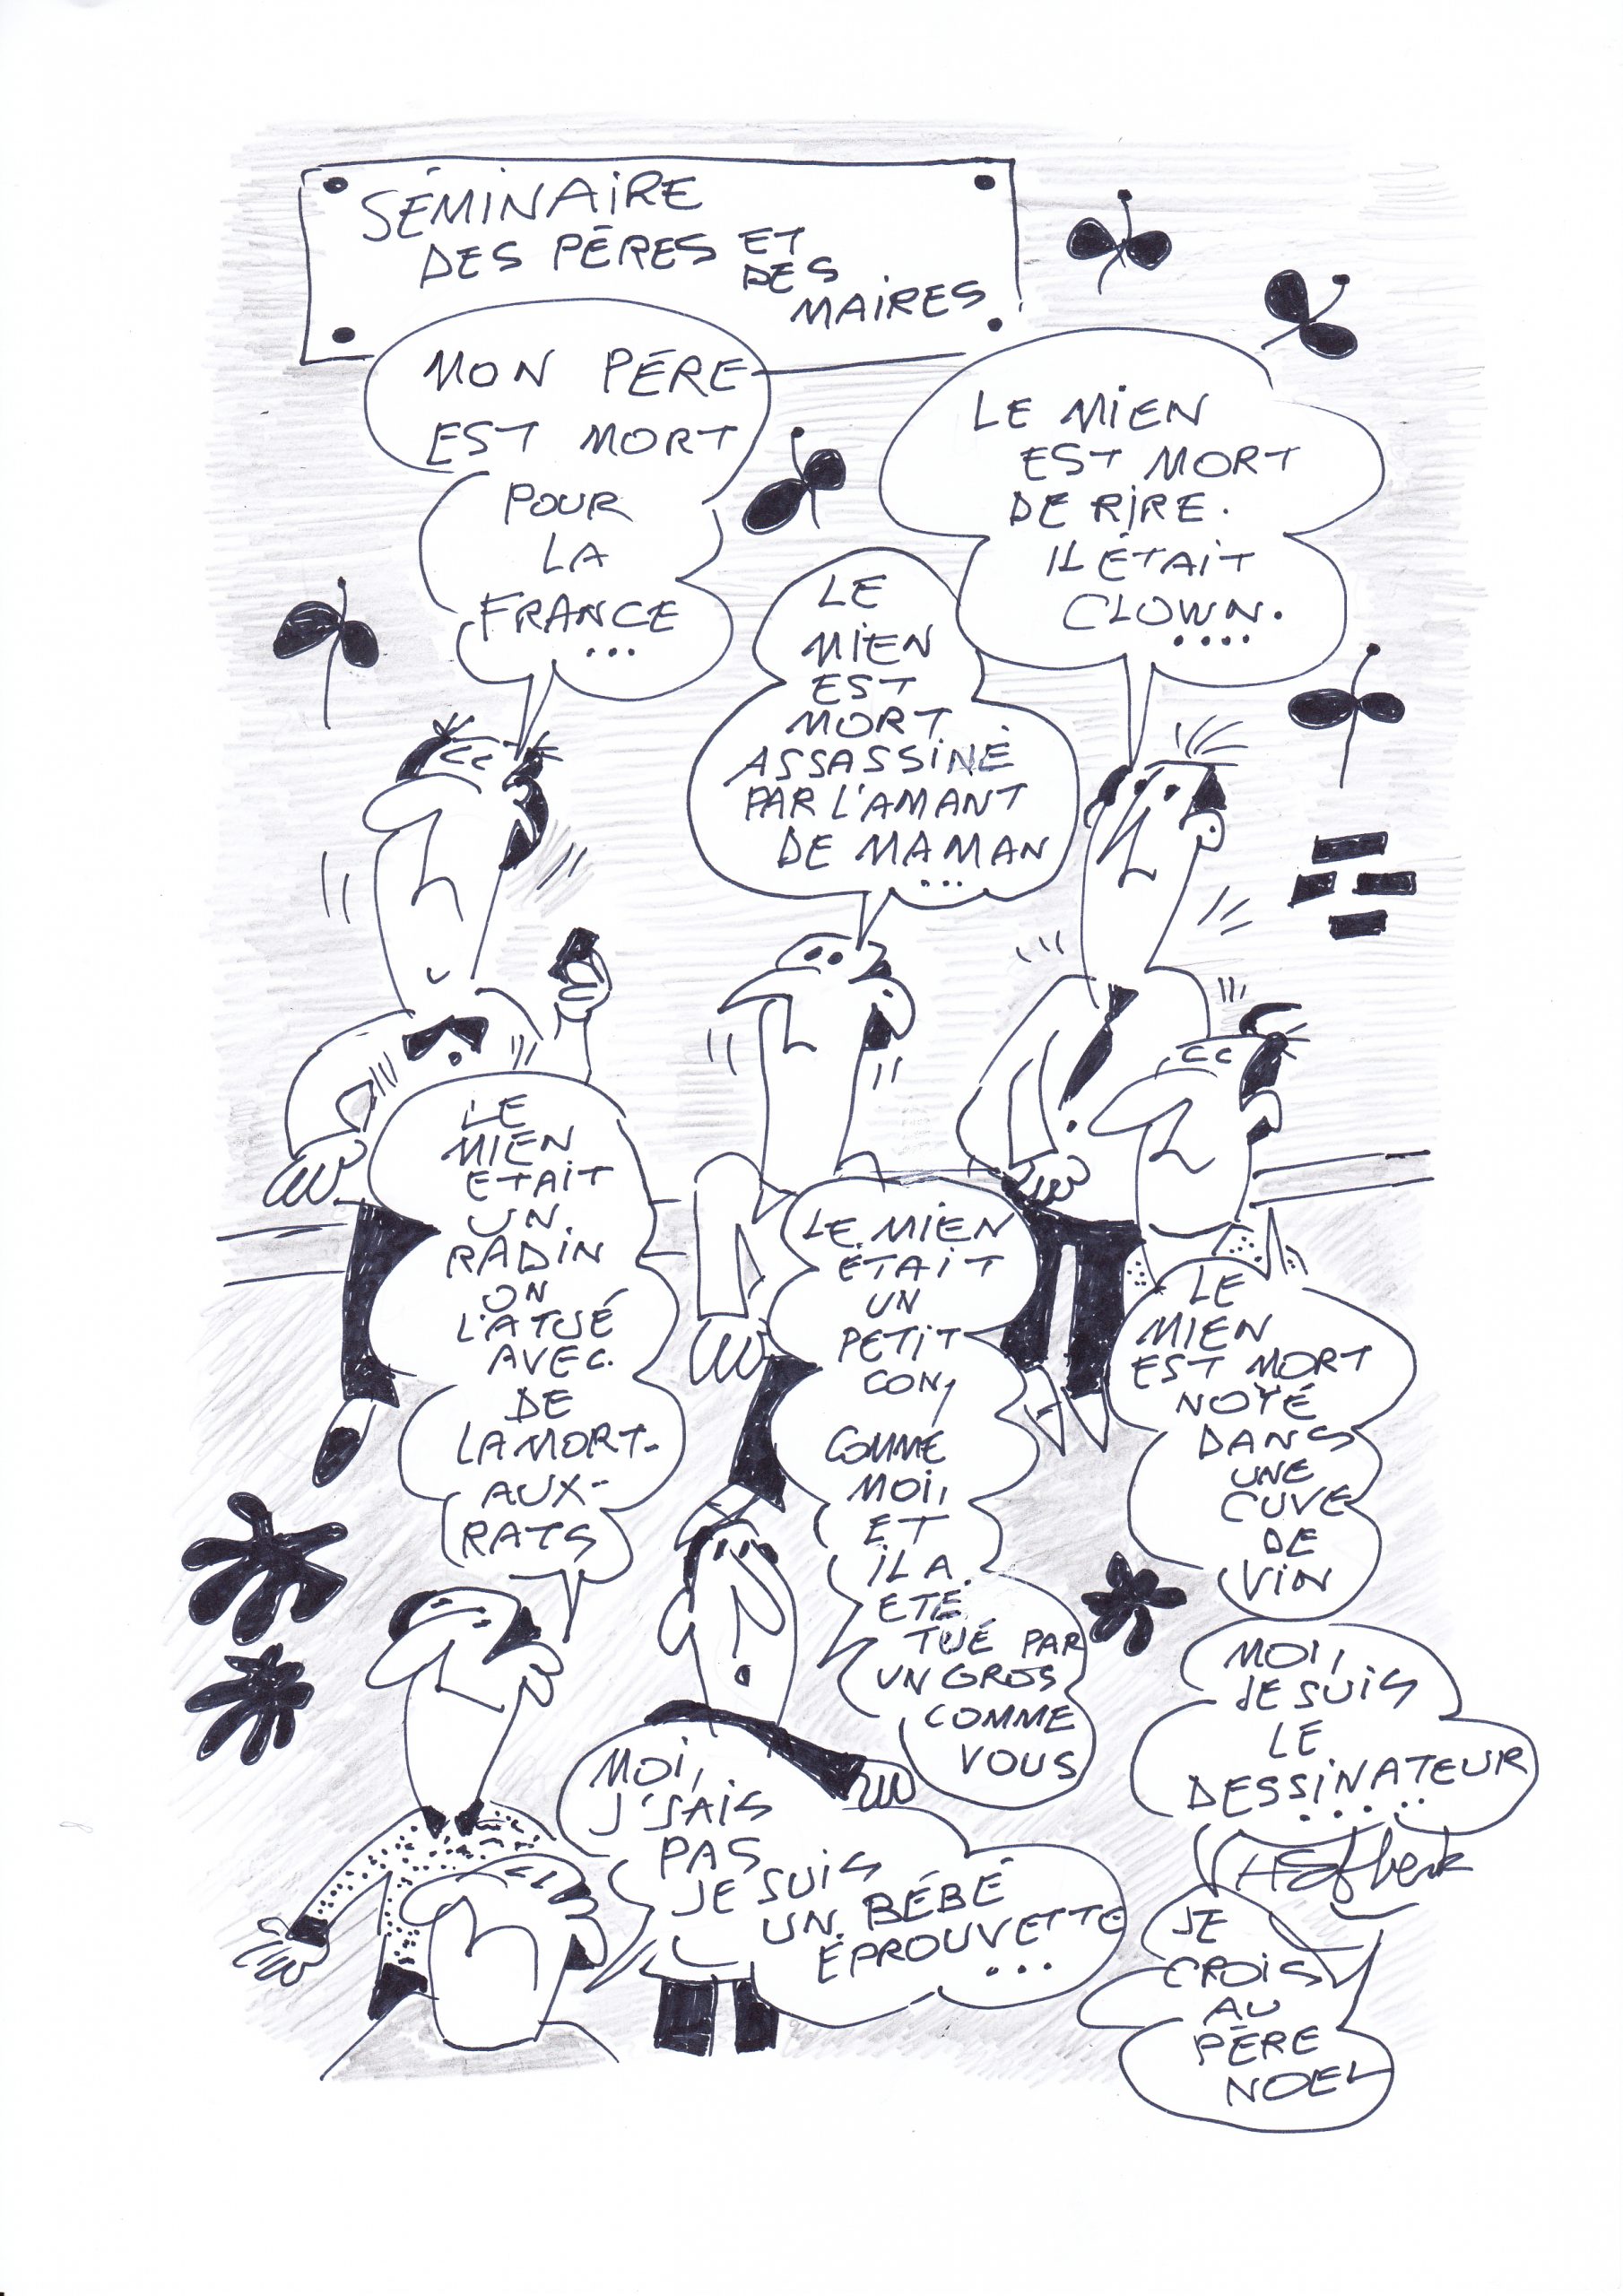 SÉMINAIRE
DES PÉRES ET
DES
MAIRES
MON PÉRE
EST MORT
POUR
LA
FRANCE
...
LE MIEN
EST MORT
DE RIRE.
IL ÉTAIT
CLOWN.
....
LE
MIEN
EST
MORT
ASSASSINÉ
PAR L'AMANT
DE MAMAN
...
LE
MIEN
ETAIT
UN
RADIN
ON
L'A TUÉ
AVEC
DE
LA MORT-
AUX-
RATS
LE MIEN
ÉTAIT
UN
PETIT
CON,
COMME
MOI,
ET
IL A
ETÉ
TUÉ PAR
UN GROS
COMME
VOUS
LE
MIEN
EST MORT
NOYÉ
DANS
UNE
CUVE
DE
VIN
MOI,
J'SAIS
PAS
JE SUIS
UN BÉBÉ
ÉPROUVETTE
...
MOI,
JE SUIS
LE
DESSINATEUR
.....
JE
CROIS
AU
PÈRE
NOEL